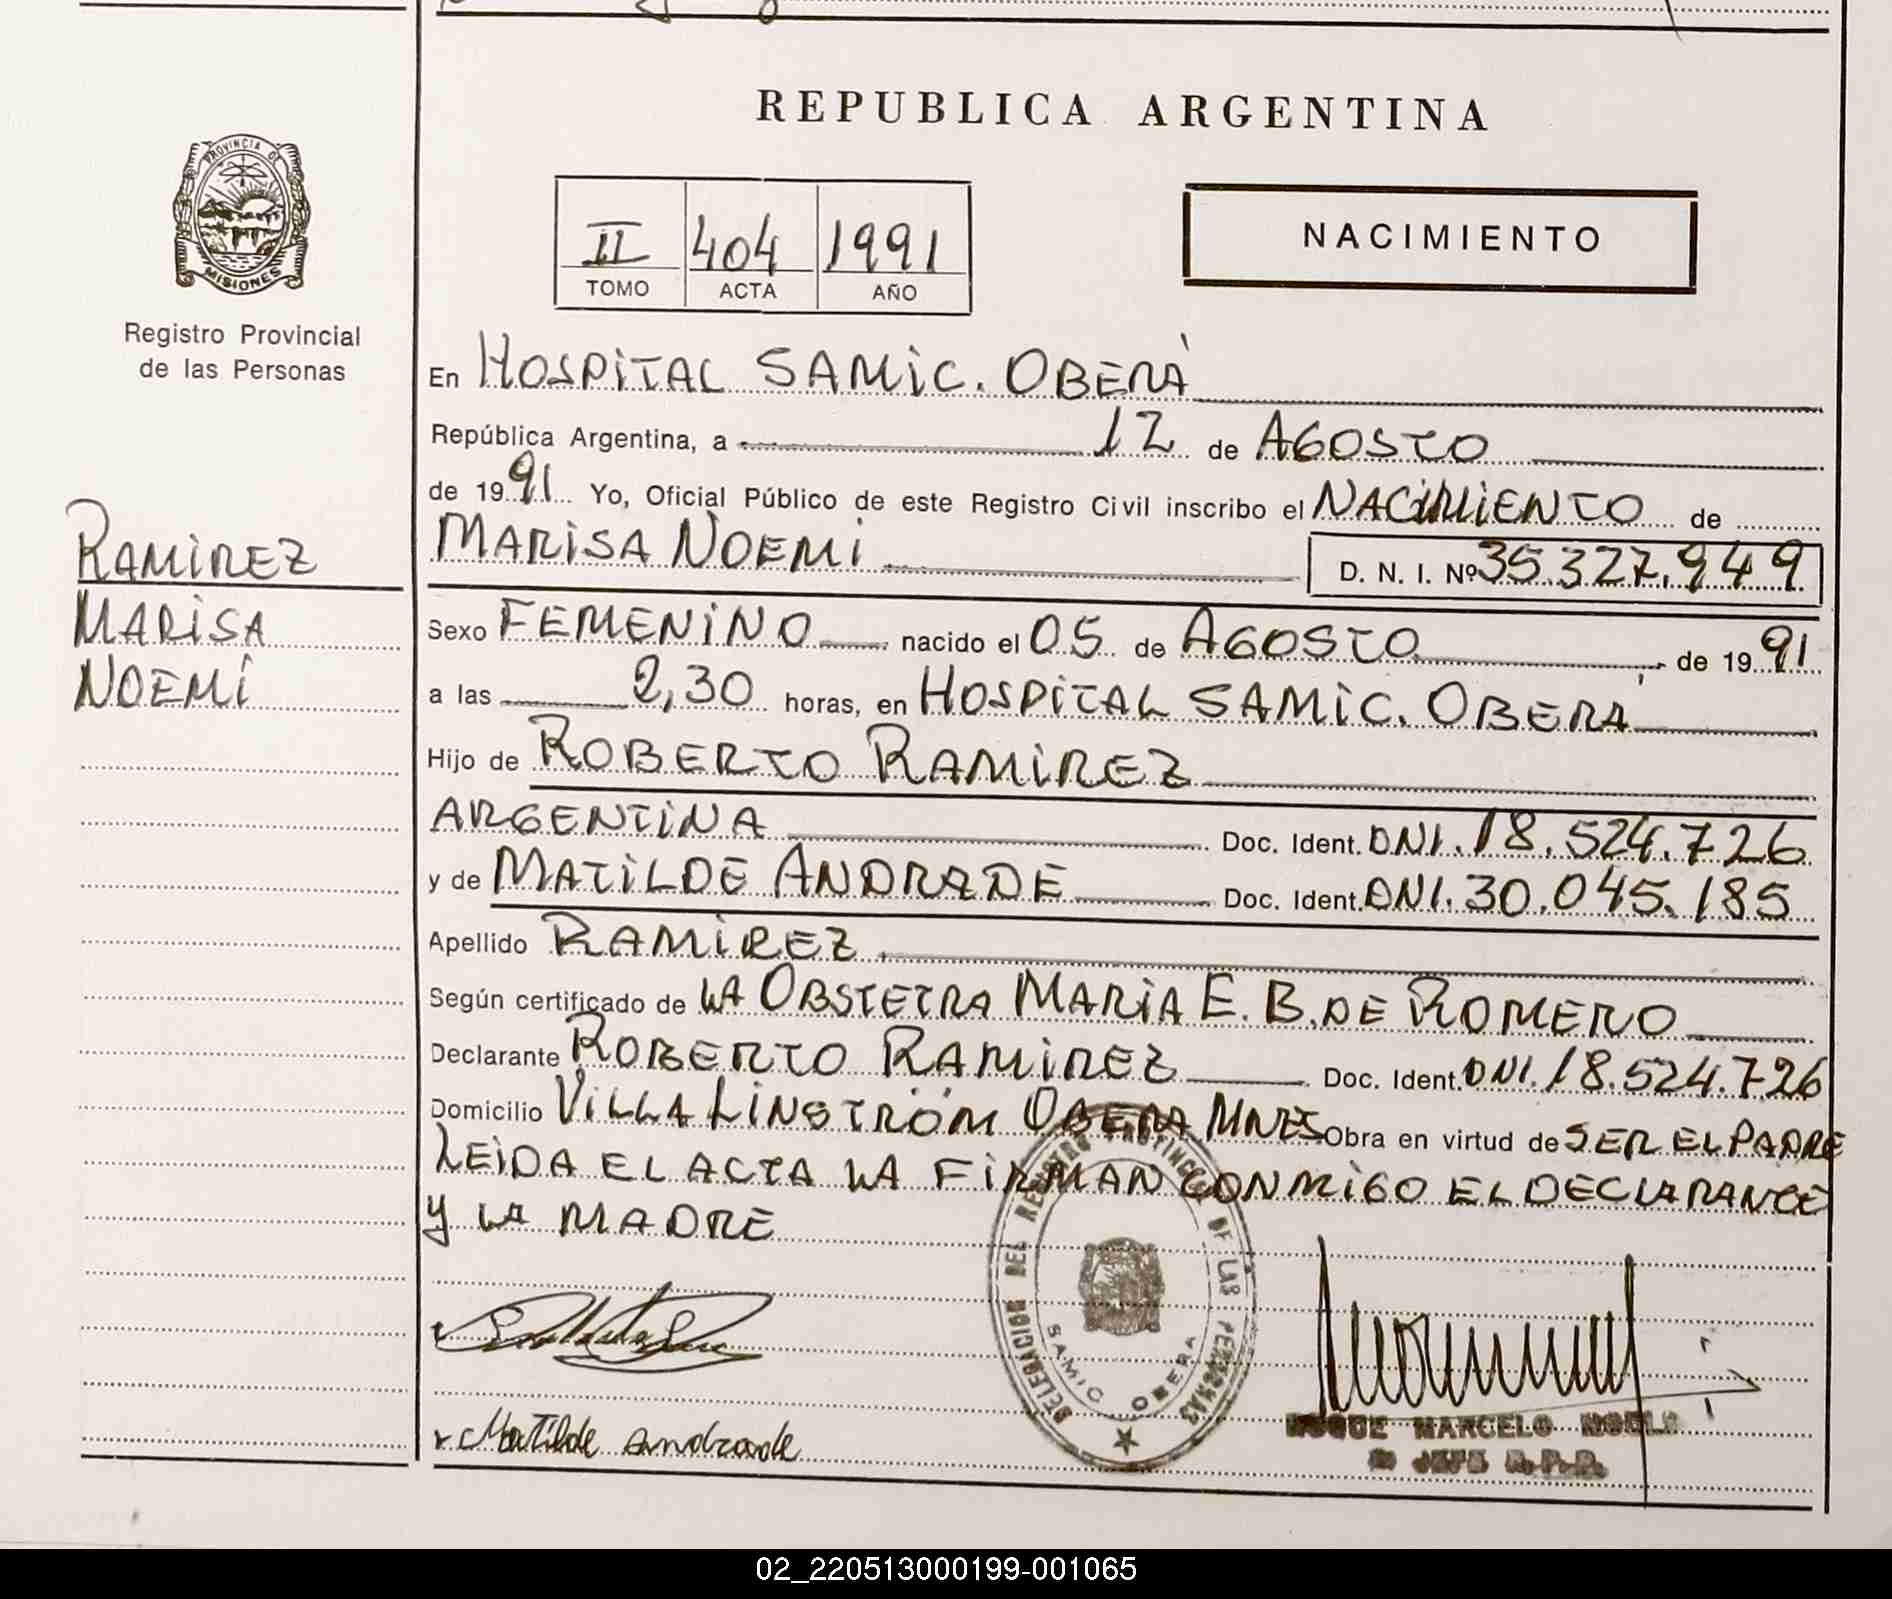 REPUBLICA ARGENTINA
PROVINCIA DE
MISIONES
Registro Provincial
de las Personas
II 404 1991
TOMO ACTA AÑO
NACIMIENTO
RAMIREZ
MARISA
NOEMÍ
En HOSPITAL SAMIC. OBERÁ
República Argentina, a 12 de AGOSTO
de 1991 Yo, Oficial Público de este Registro Civil inscribo el NACIMIENTO de
MARISA NOEMI D. N. I. Nº 35.327.949
Sexo FEMENINO nacido el 05 de AGOSTO de 1991
a las 2,30 horas, en HOSPITAL SAMIC. OBERÁ
Hijo de ROBERTO RAMIREZ
ARGENTINA Doc. Ident. DNI. 18.524.726
y de MATILDE ANDRADE Doc. Ident. DNI. 30.045.185
Apellido RAMIREZ
Según certificado de LA OBSTETRA MARIA E. B. DE ROMERO
Declarante ROBERTO RAMIREZ Doc. Ident. DNI. 18.524.726
Domicilio VILLA LINSTRÖM OBERA MNES Obra en virtud de SER EL PADRE
LEIDA EL ACTA LA FIRMAN CONMIGO EL DECLARANTE
Y LA MADRE
DELEGACION DEL REGISTRO PROVINCIAL DE LAS PERSONAS
SAMIC OBERA
Matilde Andrade
ROQUE MARCELO
JEFE R.P.P.
02_220513000199-001065